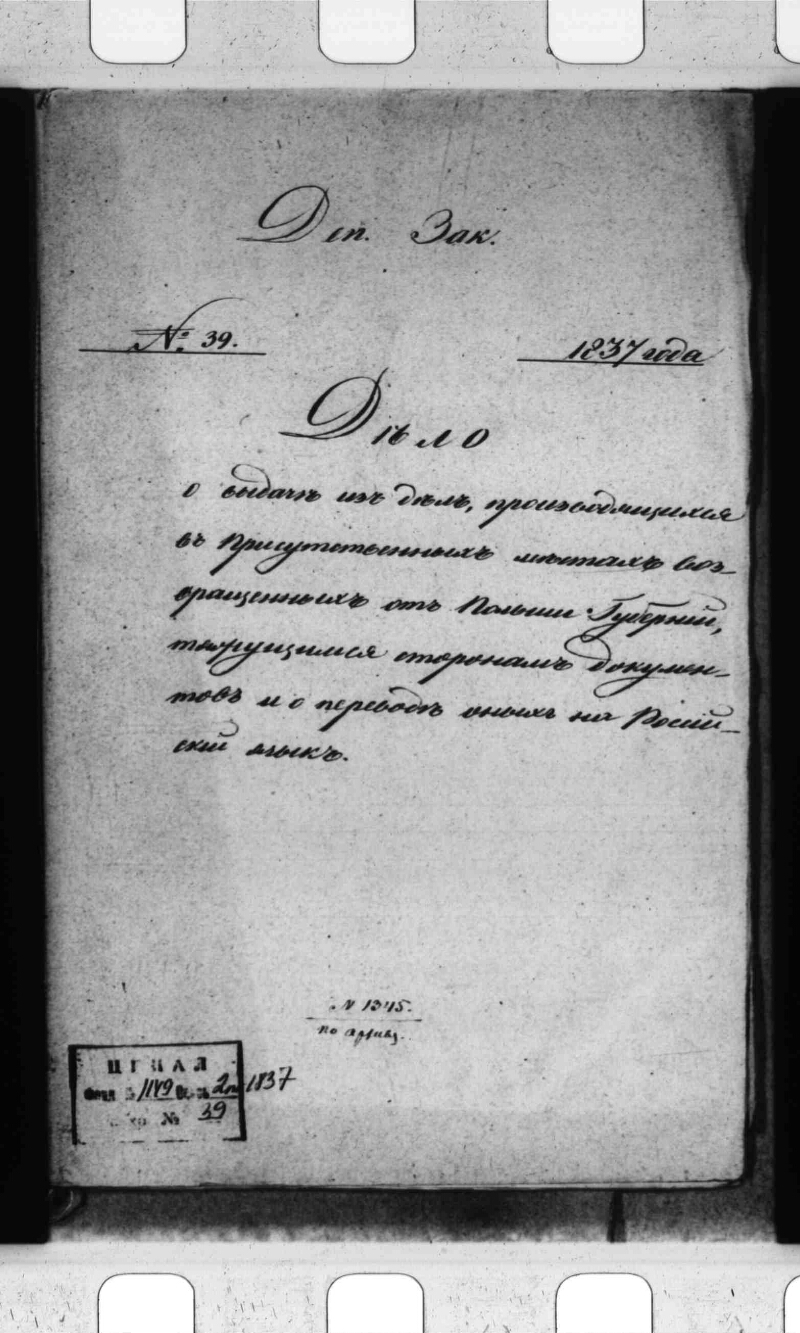 Деп. Зак.
№ 39.
1837 года
Дѣло
о выдачѣ изъ дѣлъ, производящихся
въ Присутственныхъ мѣстахъ воз-
вращенныхъ отъ Польши Губерній,
тяжущимся сторонамъ докумен-
товъ и о переводѣ оныхъ на Россій-
скій языкъ.
№ 1345.
по архиву.
ЦГИАЛ
Фонд № 1149 Опись 2 1837
№ 39